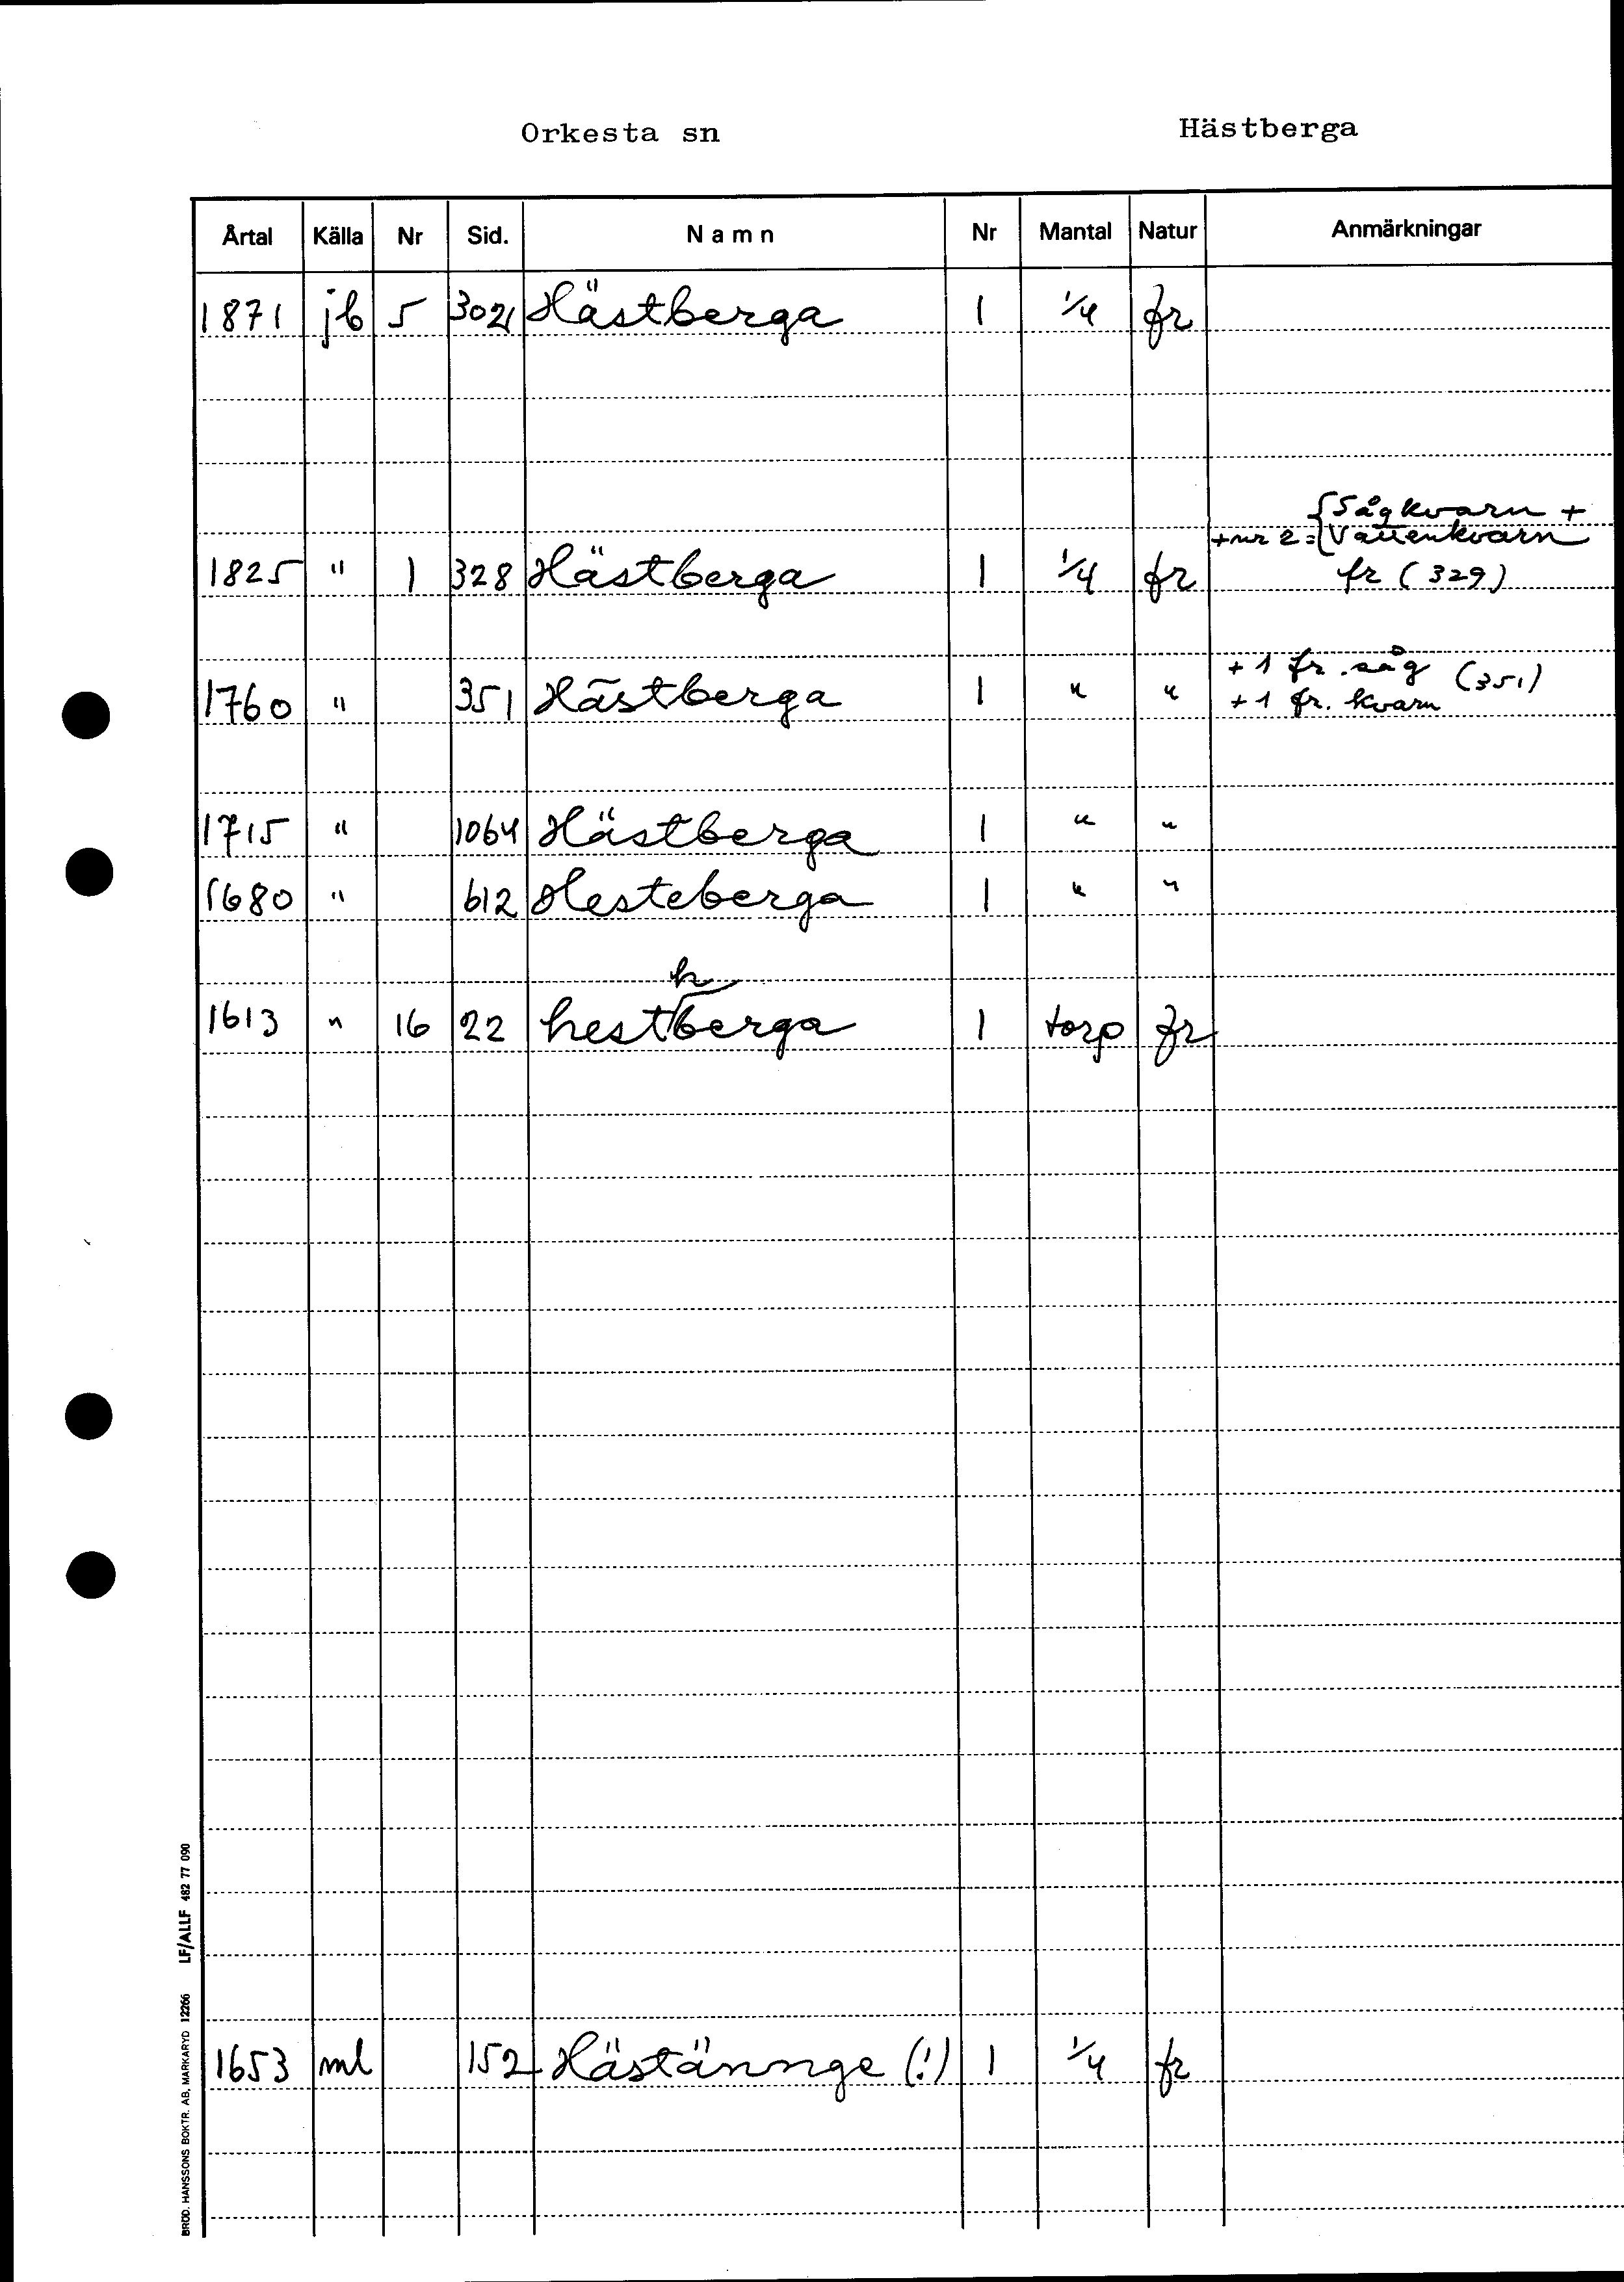 Orkesta sn Hästberga
Årtal Källa Nr Sid. Namn Nr Mantal Natur Anmärkningar
1871 jb 5 302 Hästberga 1 1/4 fr
{Sågkvarn +
+ nr 2 = {Vattenkvarn
1825 " 1 328 Hästberga 1 1/4 fr fr (329)
+ 1 fr. såg (351)
1760 " 351 Hästberga 1 " " + 1 fr. kvarn
1715 " 1064 Hästberga 1 " "
1680 " 612 Hesteberga 1 " "
h
1613 " 16 22 hestberga 1 torp fr
1653 ml 152 Hästännge (!) 1 1/4 fr
BRÖD. HANSSONS BOKTR. AB, MARKARYD 12266 LF/ALLF 482 77 090